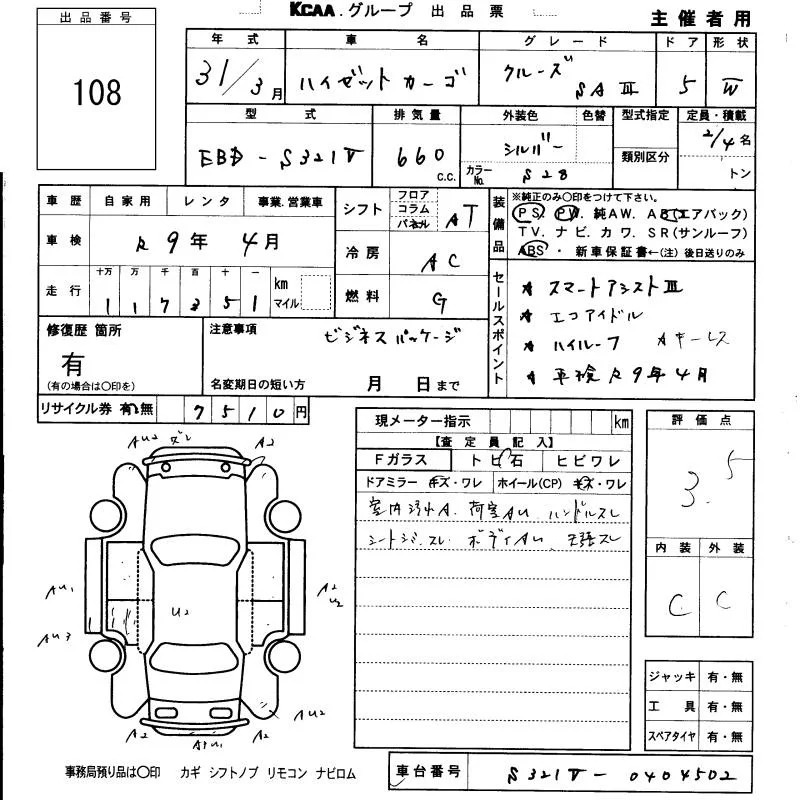 KCAA.グループ 出品票
主催者用
出品番号
108
年式 車名 グレード ドア 形状
31/3月 ハイゼットカーゴ クルーズ SAⅢ 5 W
型式 排気量 外装色 色替 型式指定 定員・積載
EBD-S321V 660 C.C. シルバー 類別区分 2/4名
カラーNo. S28 トン
車歴 自家用 レンタ 事業.営業車
車検 R9年4月
走行 十万 万 千 百 十 一 km マイル
117351
シフト フロア コラム パネル AT
冷房 AC
燃料 G
装備品 ※純正のみ○印をつけて下さい。
PS PW.純AW.AB(エアバック)
TV.ナビ.カワ.SR(サンルーフ)
ABS・新車保証書←(注)後日送りのみ
セールスポイント
★ スマートアシストⅢ
★ エコアイドル
★ ハイルーフ ★キーレス
★ 車検R9年4月
修復歴 箇所
有
(有の場合は○印を)
注意事項 ビジネスパッケージ
名変期日の短い方 月 日まで
リサイクル券 有・無 7510円
現メーター指示 km
【査定員記入】
Fガラス トビ石 ヒビワレ
ドアミラー キズ・ワレ ホイール(CP) キズ・ワレ
室内汚れA.荷室AU.ハンドルスレ
シートシミ.スレ ボディAU.天張スレ
評価点
3.5
内装 外装
C C
ジャッキ 有・無
工具 有・無
スペアタイヤ 有・無
AU2 ズレ A2
AU1 A2
U2
U2
AU3
AU2
A2 A2
事務局預り品は○印 カギ シフトノブ リモコン ナビロム
車台番号 S321V-0404502